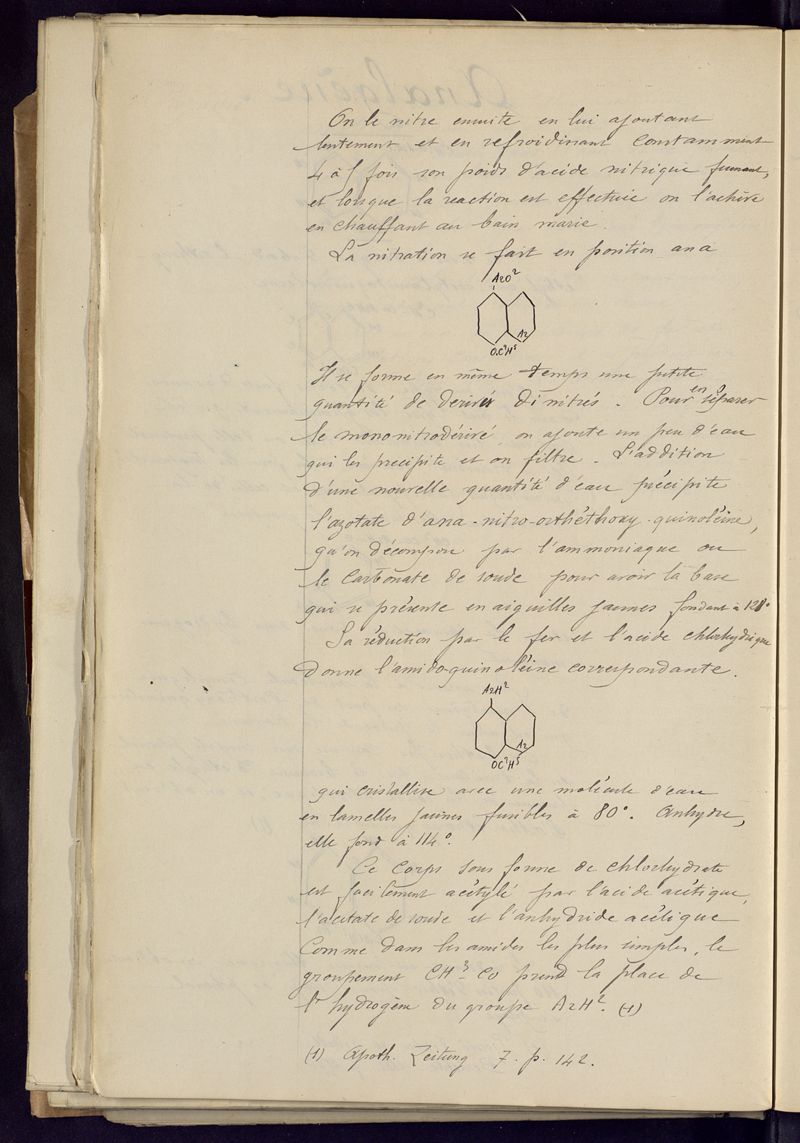 On le nitre ensuite en lui ajoutant
lentement et en refroidissant constamment
4 à 5 fois son poids d'acide nitrique fumant,
et lorsque la reaction est effectuée on l'achève
en chauffant au bain marie.
La nitration se fait en position ana
AzO²
Az
O.C²H⁵
Il se forme en même temps une petite
quantité de derivés dinitrés. Pour en séparer
le mononitrodérivé on ajoute un peu d'eau
qui les precipite et on filtre. L'addition
d'une nouvelle quantité d'eau précipite
l'azotate d'ana-nitro-orthéthoxy-quinoléine,
qu'on décompose par l'ammoniaque ou
le carbonate de soude pour avoir la base
qui se présente en aiguilles jaunes fondant à 128°
Sa réduction par le fer et l'acide chlorhydrique
donne l'amido-quinoléine correspondante.
AzH²
Az
OC²H⁵
qui cristallise avec une molécule d'eau
en lamelles jaunes fusibles à 80°. Anhydre,
elle fond à 114°.
Ce corps sous forme de chlorhydrate
est facilement acétylé par l'acide acétique,
l'acétate de soude et l'anhydride acétique
Comme dans les amides les plus simples, le
groupement CH³-CO prend la place de
l'hydrogène du groupe AzH². (1)
(1) Apoth. Zeitung 7. p. 142.